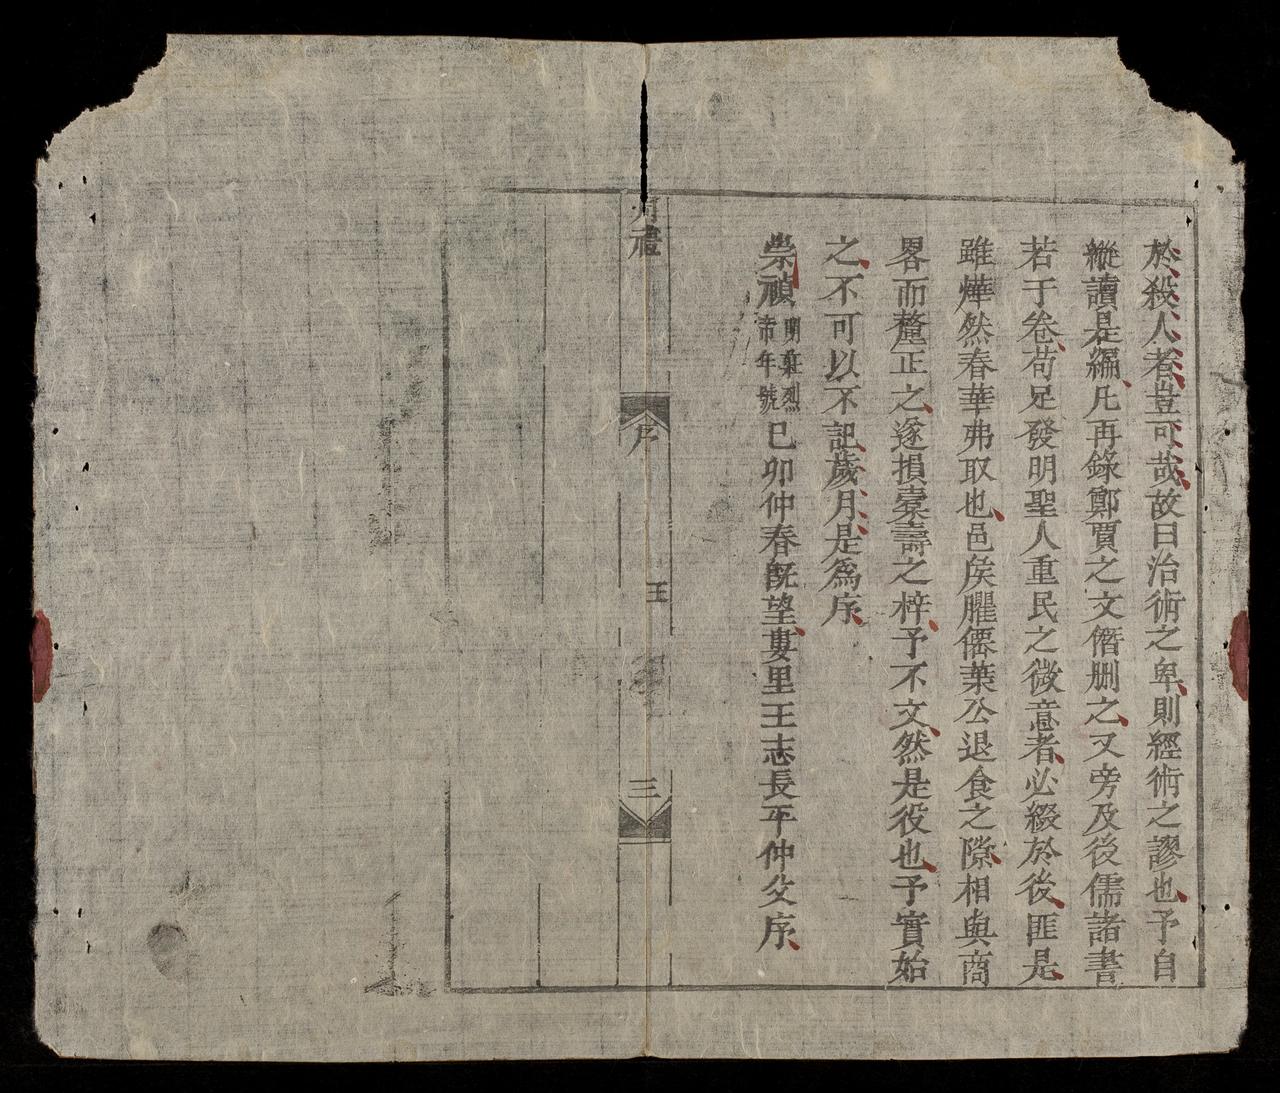 於殺人者豈可哉故曰治術之卑則經術之謬也予自
縱讀是編凡再錄鄭賈之文僭刪之又旁及後儒諸書
若干卷苟足發明聖人重民之微意者必綴於後匪是
雖燁然春華弗取也邑矦臞僊葉公退食之隙相與商
畧而釐正之遂損橐壽之梓予不文然是役也予實始
之不可以不記歲月是爲序
崇禎明莊烈帝年號己卯仲春旣望婁里王志長平仲父序
禮
序
王
三